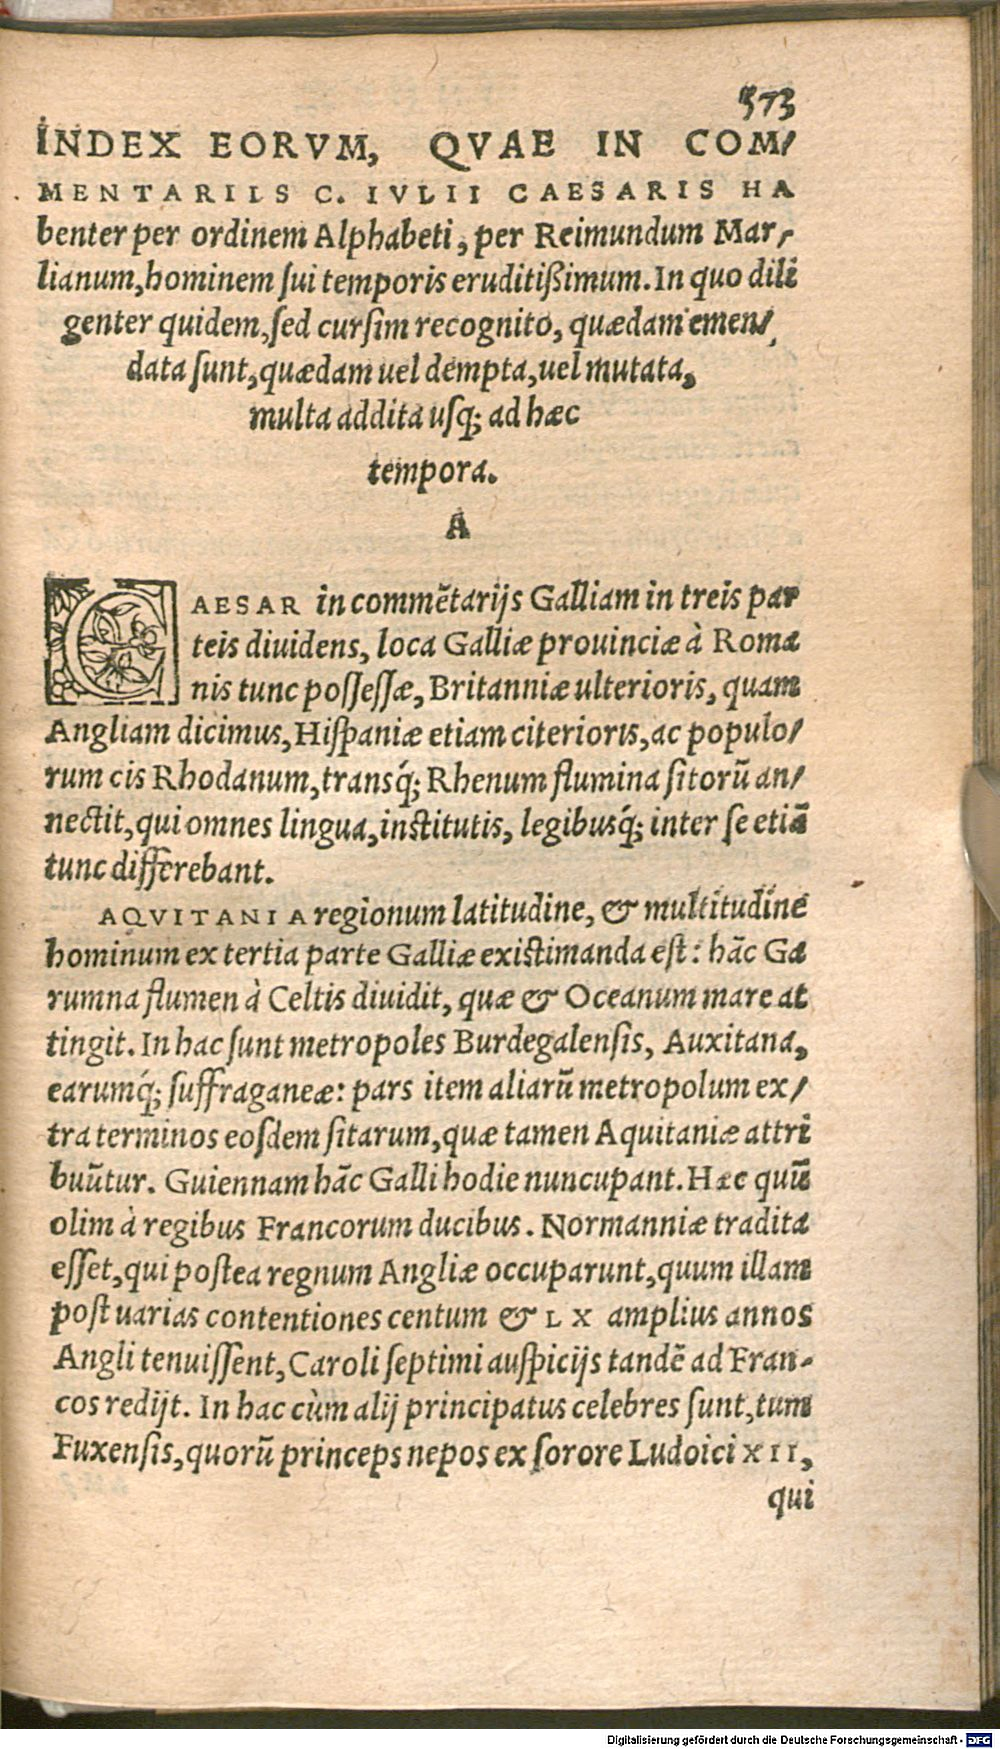 573
INDEX EORVM, QVAE IN COM/
MENTARIIS C. IVLII CAESARIS HA
benter per ordinem Alphabeti, per Reimundum Mar/
lianum, hominem sui temporis eruditißimum. In quo dili
genter quidem, sed cursim recognito, quædam emen/
data sunt, quædam uel dempta, uel mutata,
multa addita usq; ad hæc
tempora.
A
CAESAR in commẽtarijs Galliam in treis par
teis diuidens, loca Galliæ prouinciæ à Roma
nis tunc possessæ, Britanniæ ulterioris, quam
Angliam dicimus, Hispaniæ etiam citerioris, ac populo/
rum cis Rhodanum, transq́; Rhenum flumina sitorũ an/
nectit, qui omnes lingua, institutis, legibusq́; inter se etiã
tunc differebant.
AQVITANIA regionum latitudine, & multitudine
hominum ex tertia parte Galliæ existimanda est: hãc Ga
rumna flumen à Celtis diuidit, quæ & Oceanum mare at
tingit. In hac sunt metropoles Burdegalensis, Auxitana,
earumq́; suffraganeæ: pars item aliarũ metropolum ex/
tra terminos eosdem sitarum, quæ tamen Aquitaniæ attri
buũtur. Guiennam hãc Galli hodie nuncupant. Hæc quũ
olim à regibus Francorum ducibus. Normanniæ tradita
esset, qui postea regnum Angliæ occuparunt, quum illam
post uarias contentiones centum & LX amplius annos
Angli tenuissent, Caroli septimi auspicijs tandẽ ad Fran-
cos redijt. In hac cùm alij principatus celebres sunt, tum
Fuxensis, quorũ princeps nepos ex sorore Ludoici XII,
qui
Digitalisierung gefördert durch die Deutsche Forschungsgemeinschaft - DFG